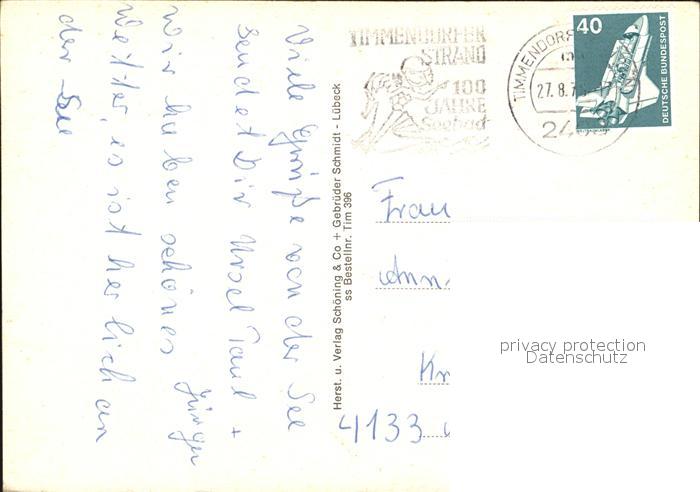 TIMMENDORFER
STRAND
100
JAHRE
Seebad
TIMMENDORF
27.8.7
24
40
DEUTSCHE BUNDESPOST
Viele Grüße von der See
sendet Dir Ursel Paul +
Jürgen
wir haben schönes
Wetter, es ist herlich an
der See
Herst. u. Verlag Schöning & Co + Gebrüder Schmidt - Lübeck
ss Bestellnr. Tim 396
Frau
Ann
Kr
4133
privacy protection
Datenschutz